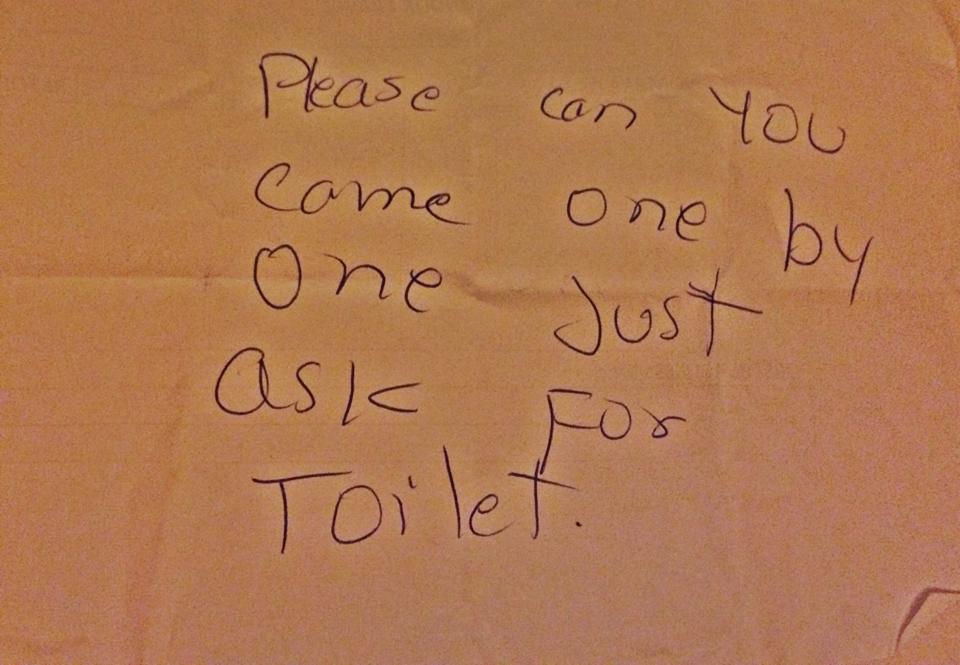 Please can you
came one by
one just
ask For
Toilet.